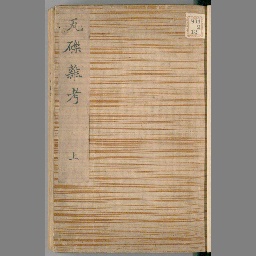 瓦礫雜考
上